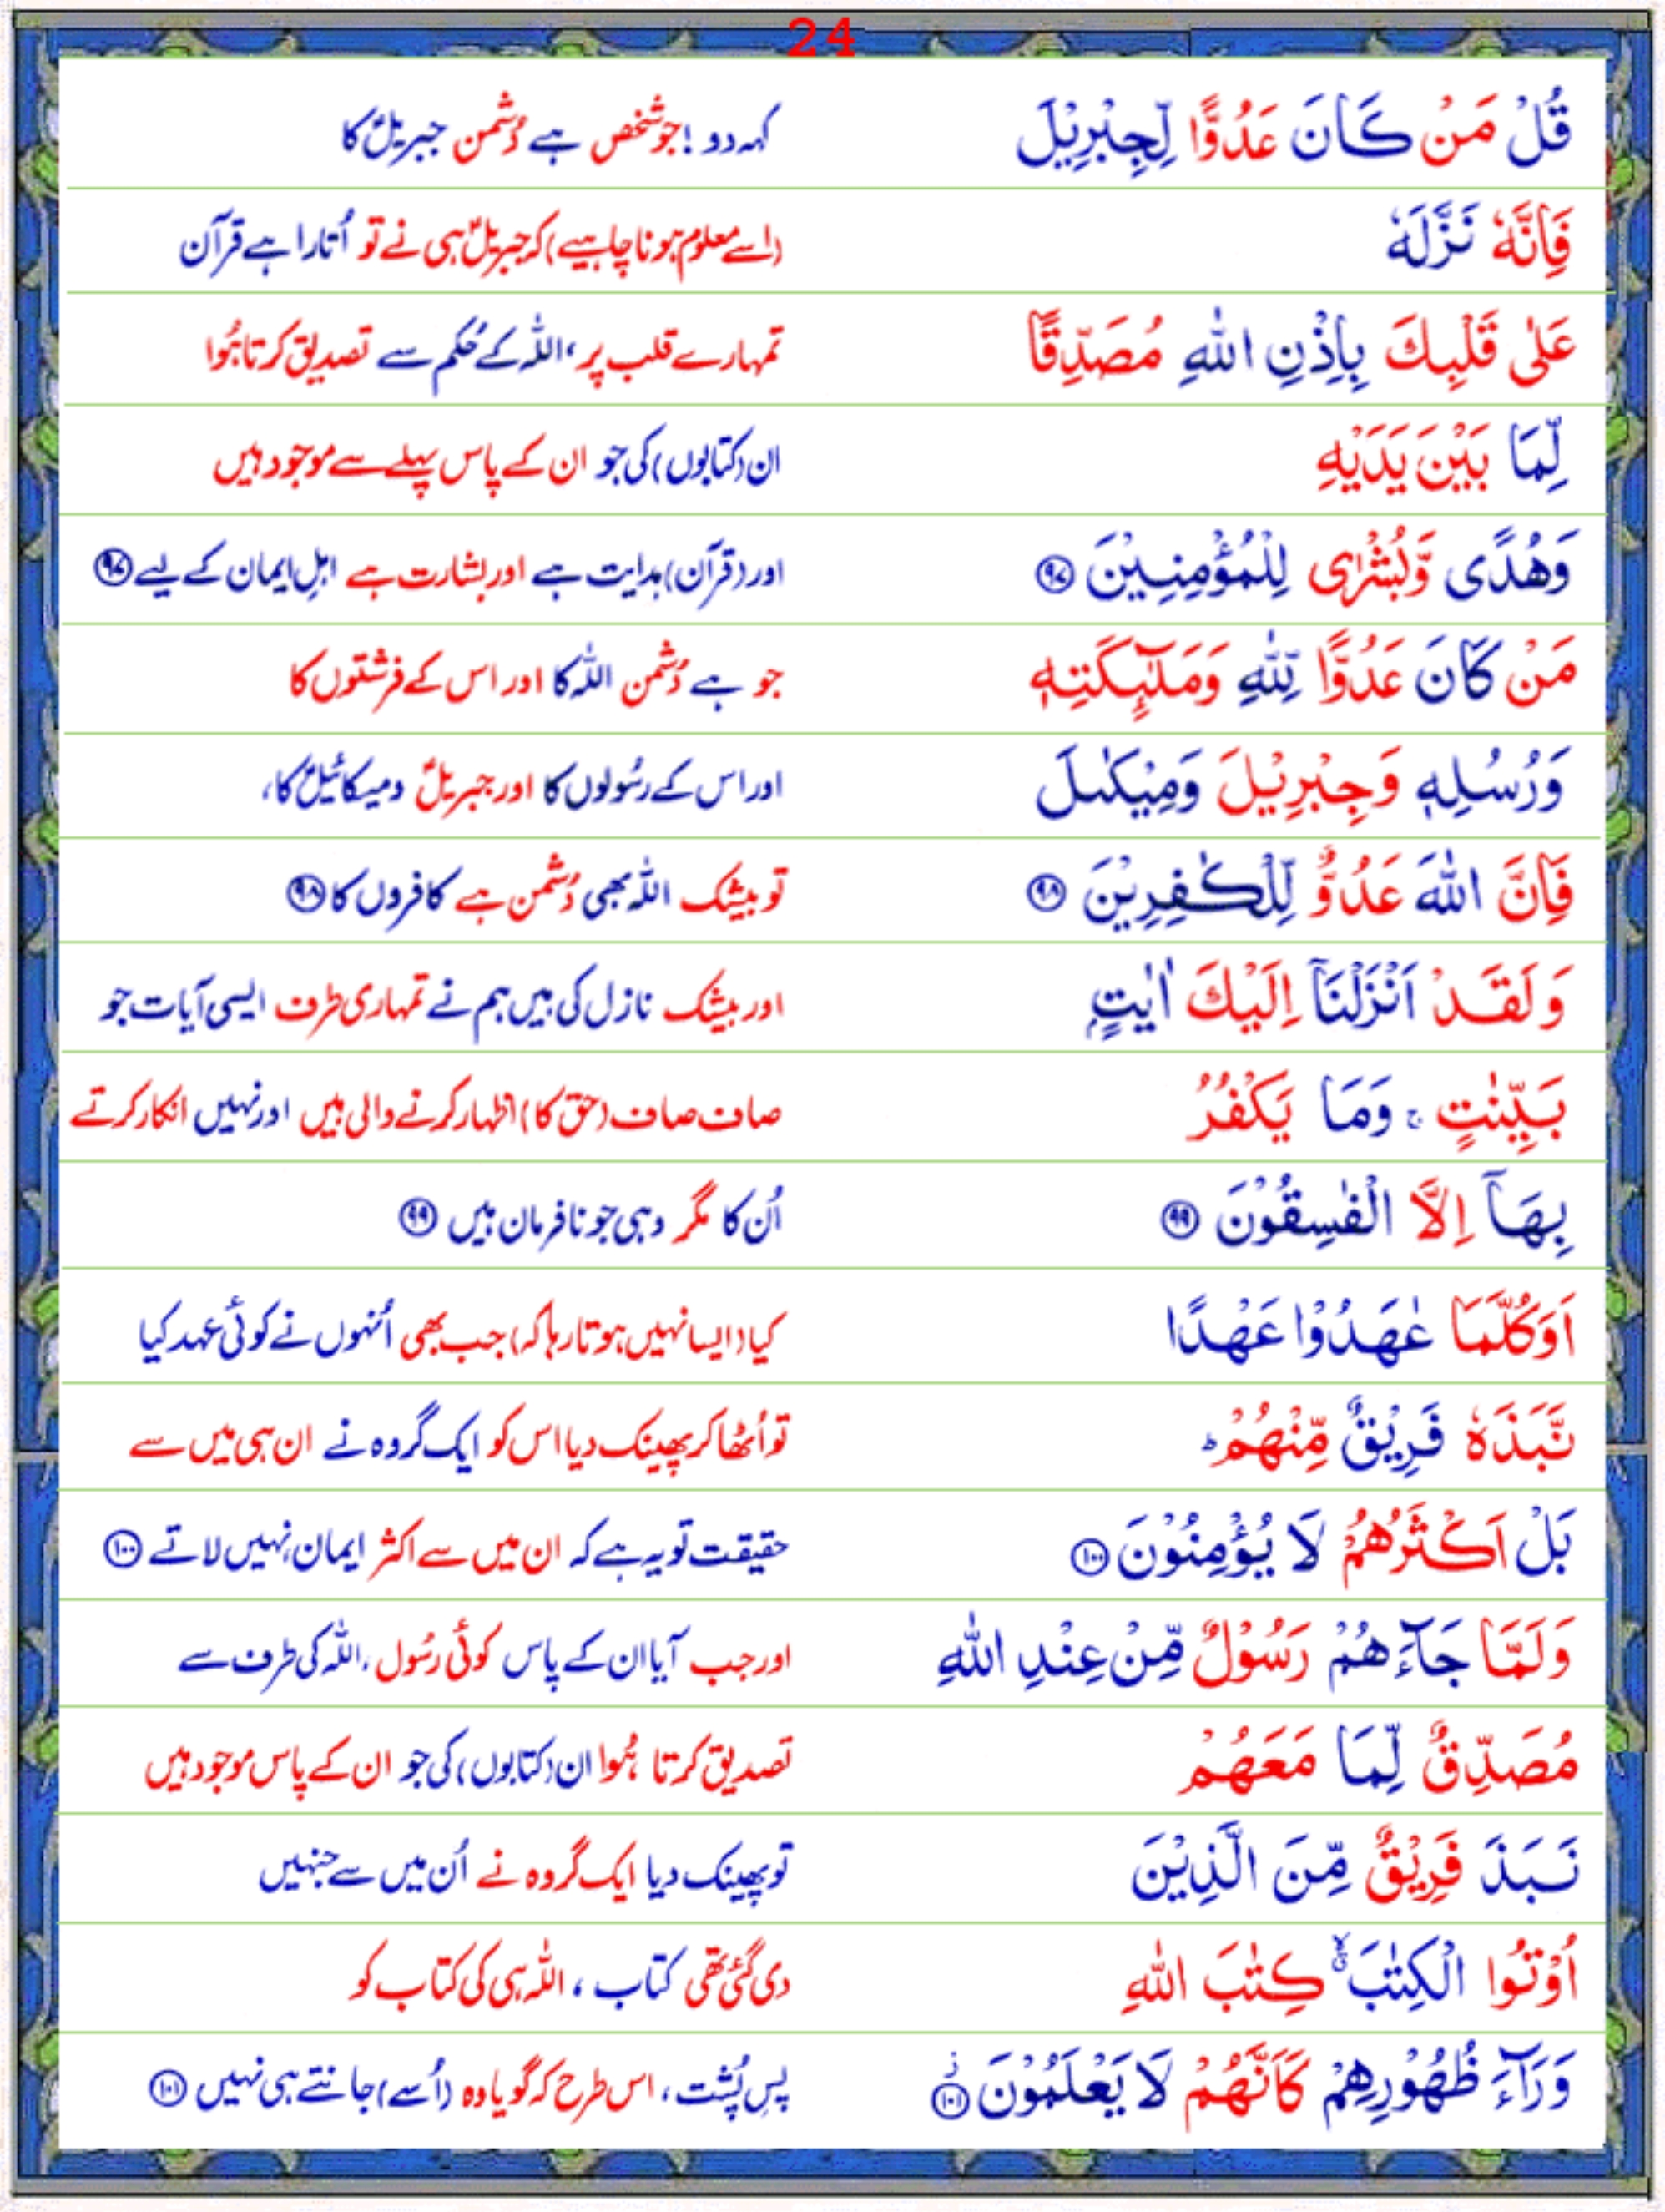 24
قُلْ مَنْ كَانَ عَدُوًّا لِّجِبْرِيْلَ کہہ دو! جو شخص ہے دُشمن جبریلؑ کا
فَاِنَّهٗ نَزَّلَهٗ (اسے معلوم ہونا چاہیے) کہ جبریلؑ ہی نے تو اُتارا ہے قرآن
عَلٰى قَلْبِكَ بِاِذْنِ اللّٰهِ مُصَدِّقًا تمہارے قلب پر، اللّٰہ کے حُکم سے تصدیق کرتا ہُوا
لِّمَا بَيْنَ يَدَيْهِ ان (کتابوں) کی جو ان کے پاس پہلے سے موجود ہیں
وَهُدًى وَّبُشْرٰى لِلْمُؤْمِنِيْنَ ۹۷ اور (قرآن) ہدایت ہے اور بشارت ہے اہلِ ایمان کے لیے ۹۷
مَنْ كَانَ عَدُوًّا لِّلّٰهِ وَمَلٰٓئِكَتِهٖ جو ہے دُشمن اللّٰہ کا اور اس کے فرشتوں کا
وَرُسُلِهٖ وَجِبْرِيْلَ وَمِيْكٰىلَ اور اس کے رسُولوں کا اور جبریلؑ ومیکائیلؑ کا،
فَاِنَّ اللّٰهَ عَدُوٌّ لِّلْكٰفِرِيْنَ ۹۸ تو بیشک اللّٰہ بھی دُشمن ہے کافروں کا ۹۸
وَلَقَدْ اَنْزَلْنَآ اِلَيْكَ اٰيٰتٍۭ اور بیشک نازل کی ہیں ہم نے تمہاری طرف ایسی آیات جو
بَيِّنٰتٍ ۚ وَمَا يَكْفُرُ صاف صاف (حق کا) اظہار کرنے والی ہیں اور نہیں انکار کرتے
بِهَآ اِلَّا الْفٰسِقُوْنَ ۹۹ اُن کا مگر وہی جو نافرمان ہیں ۹۹
اَوَكُلَّمَا عٰهَدُوْا عَهْدًا کیا (ایسا نہیں ہوتا رہا کہ) جب بھی اُنہوں نے کوئی عہد کیا
نَّبَذَهٗ فَرِيْقٌ مِّنْهُمْ ؕ تو اُٹھا کر پھینک دیا اس کو ایک گروہ نے ان ہی میں سے
بَلْ اَكْثَرُهُمْ لَا يُؤْمِنُوْنَ ۱۰۰ حقیقت تو یہ ہے کہ ان میں سے اکثر ایمان نہیں لاتے ۱۰۰
وَلَمَّا جَآءَهُمْ رَسُوْلٌ مِّنْ عِنْدِ اللّٰهِ اور جب آیا ان کے پاس کوئی رسُول، اللّٰہ کی طرف سے
مُصَدِّقٌ لِّمَا مَعَهُمْ تصدیق کرتا ہُوا ان (کتابوں) کی جو ان کے پاس موجود ہیں
نَبَذَ فَرِيْقٌ مِّنَ الَّذِيْنَ تو پھینک دیا ایک گروہ نے اُن میں سے جنہیں
اُوْتُوا الْكِتٰبَ ۙۗ كِتٰبَ اللّٰهِ دی گئی تھی کتاب، اللّٰہ ہی کی کتاب کو
وَرَآءَ ظُهُوْرِهِمْ كَاَنَّهُمْ لَا يَعْلَمُوْنَ ۱۰۱ پسِ پُشت، اس طرح کہ گویا وہ (اُسے) جانتے ہی نہیں ۱۰۱